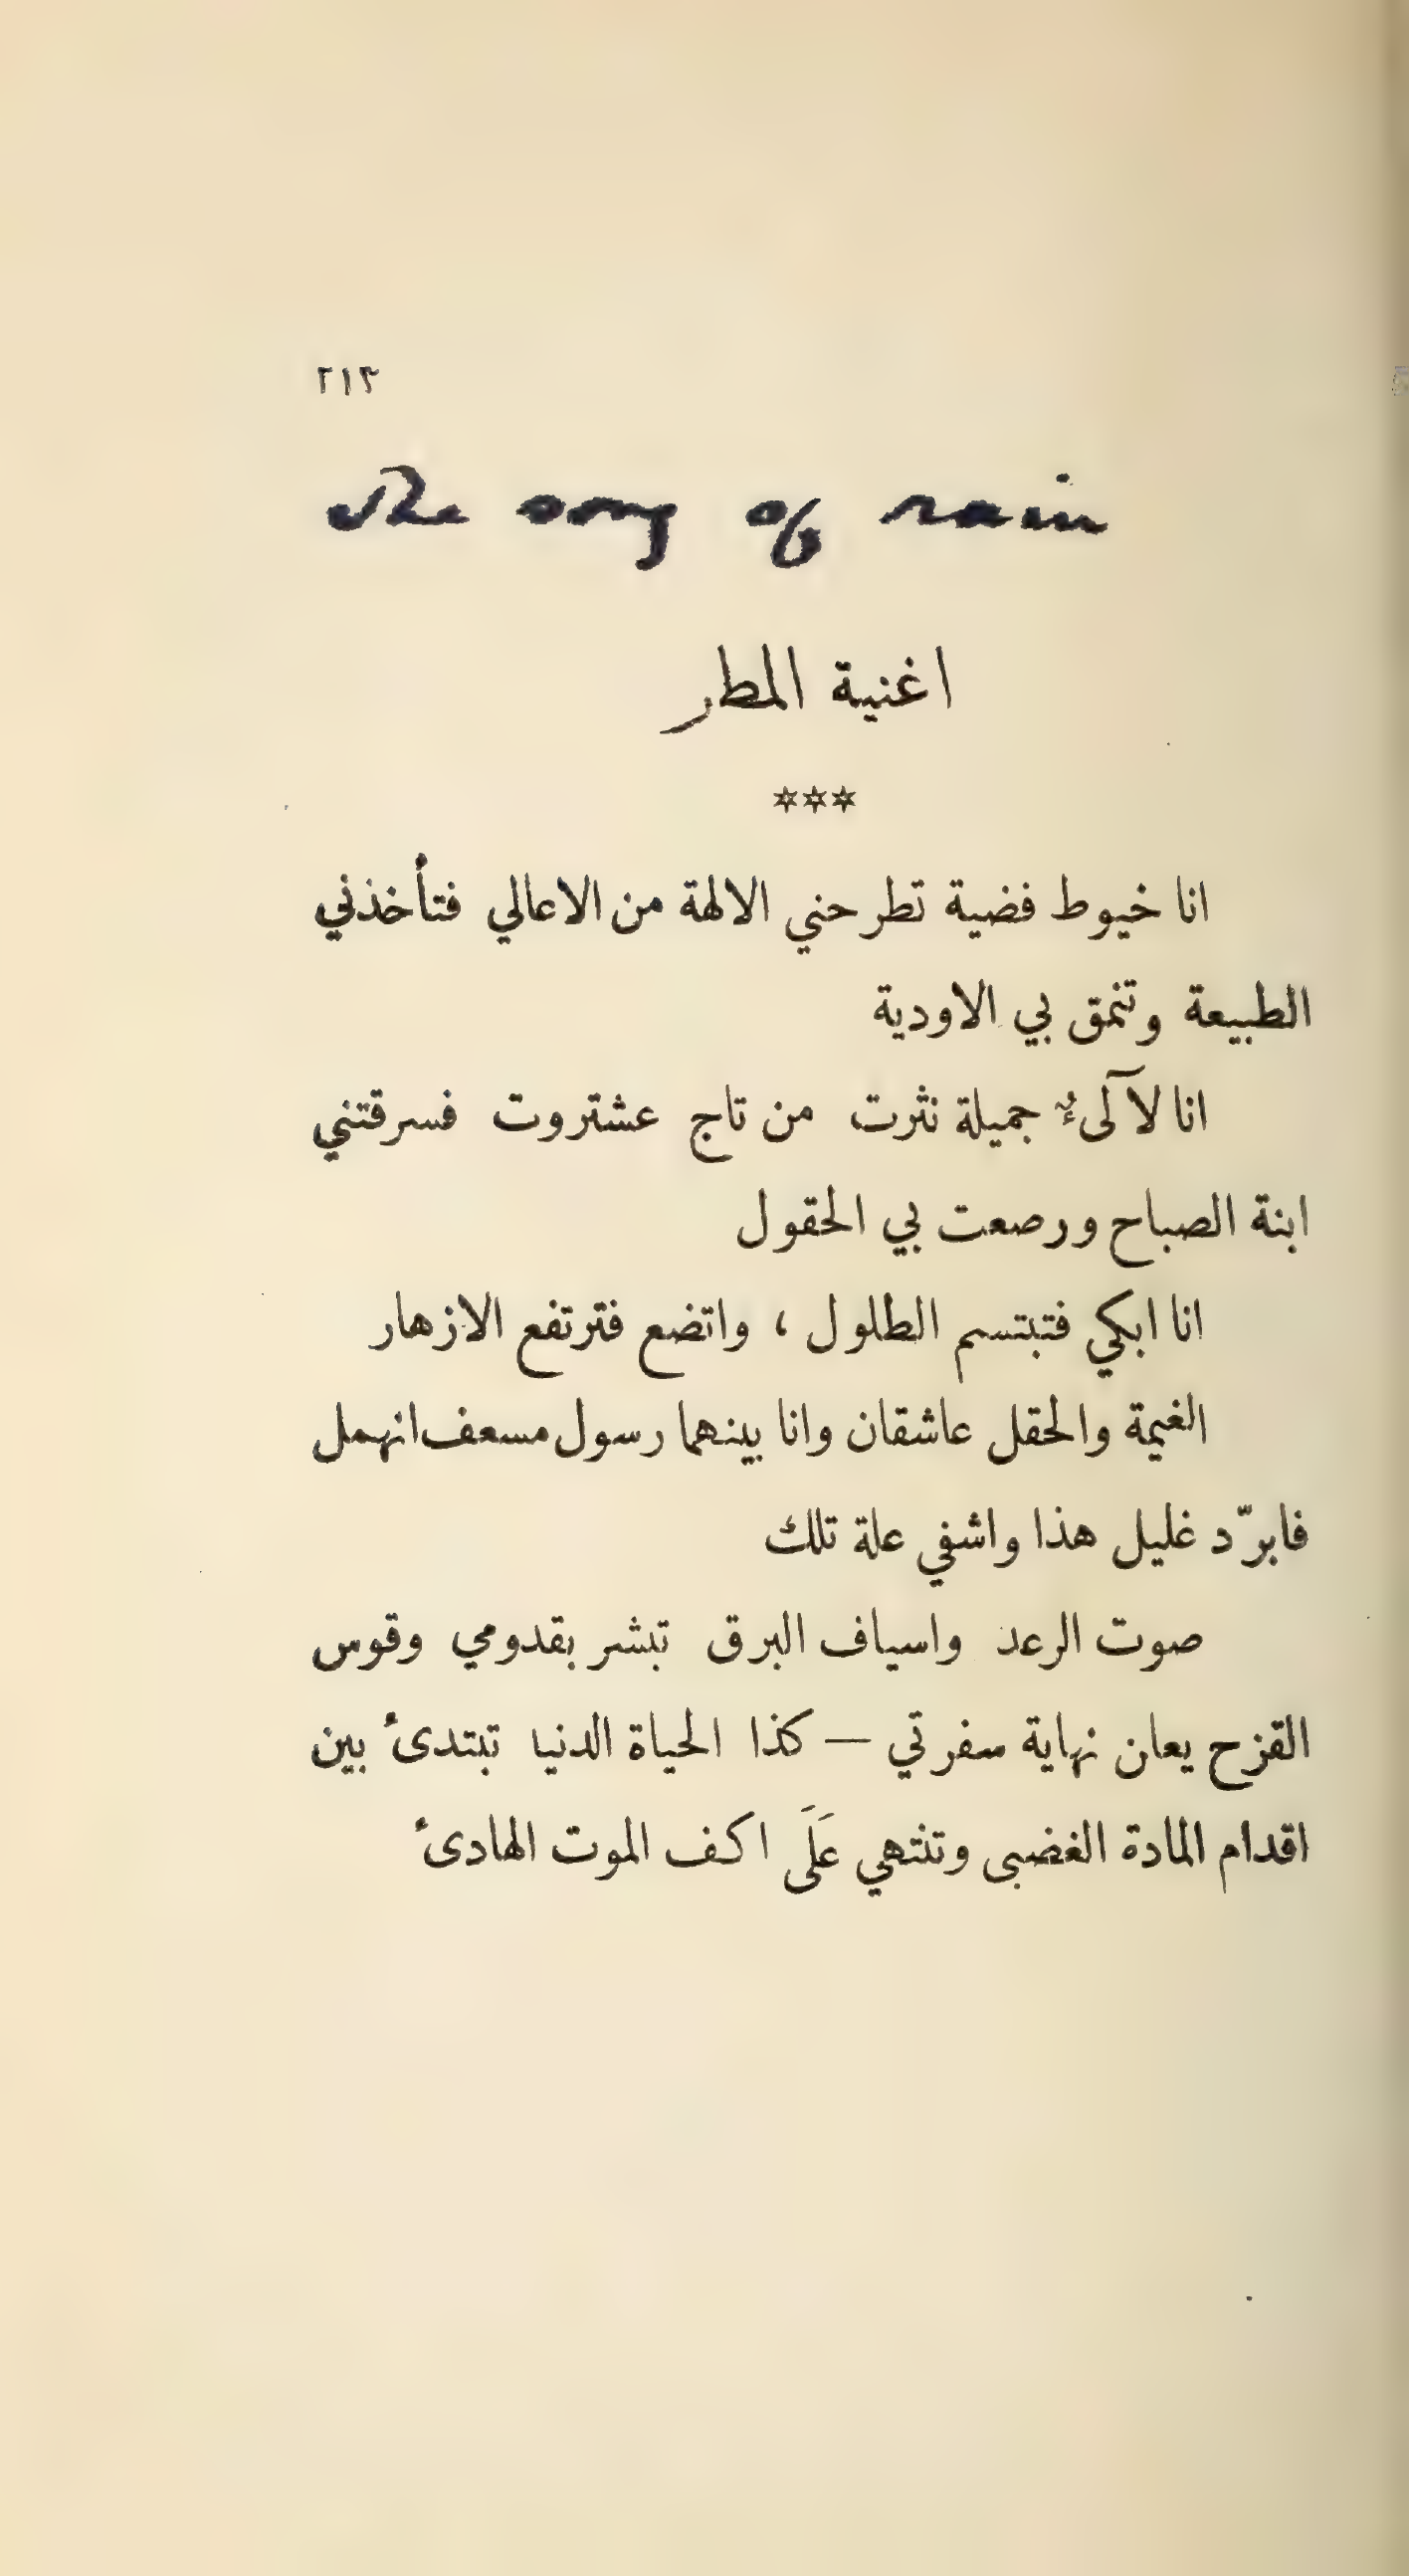 ٢١٣
The song of rain
اغنية المطر
***
انا خيوط فضية تطرحني الالهة من الاعالي فتأخذني
الطبيعة وتنمق بي الاودية
انا لآلىءٌ جميلة نثرت من تاج عشتروت فسرقتني
ابنة الصباح ورصعت بي الحقول
انا ابكي فتبتسم الطلول ، واتضع فترتفع الازهار
الغيمة والحقل عاشقان وانا بينهما رسول مسعف انهمل
فابرّد غليل هذا واشفي علة تلك
صوت الرعد واسياف البرق تبشر بقدومي وقوس
القزح يعان نهاية سفرتي — كذا الحياة الدنيا تبتدئ بين
اقدام المادة الغضبى وتنتهي عَلَى اكف الموت الهادئ